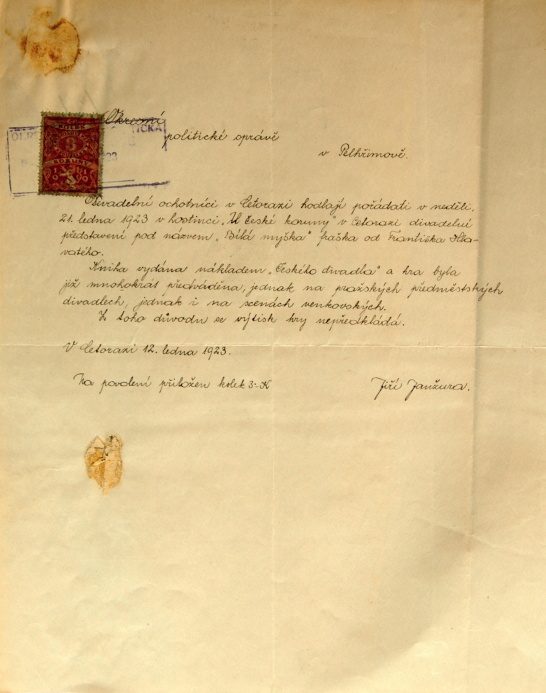 Okresní
politické správě
v Pelhřimově.
Divadelní ochotníci v Cetorazi hodlají pořádati v neděli,
21. ledna 1923 v hostinci „U české koruny" v Cetorazi divadelní
představení pod názvem „Bílá myška" fraška od Františka Hla-
vatého.
Kniha vydána nákladem „Českého divadla" a hra byla
již mnohokrát předváděna, jednak na pražských předměstských
divadlech, jednak i na scenách venkovských.
Z toho důvodu se výtisk hry nepředkládá.
V Cetorazi 12. ledna 1923.
Na povolení přiložen kolek 3·-K
Jiří Janžura.